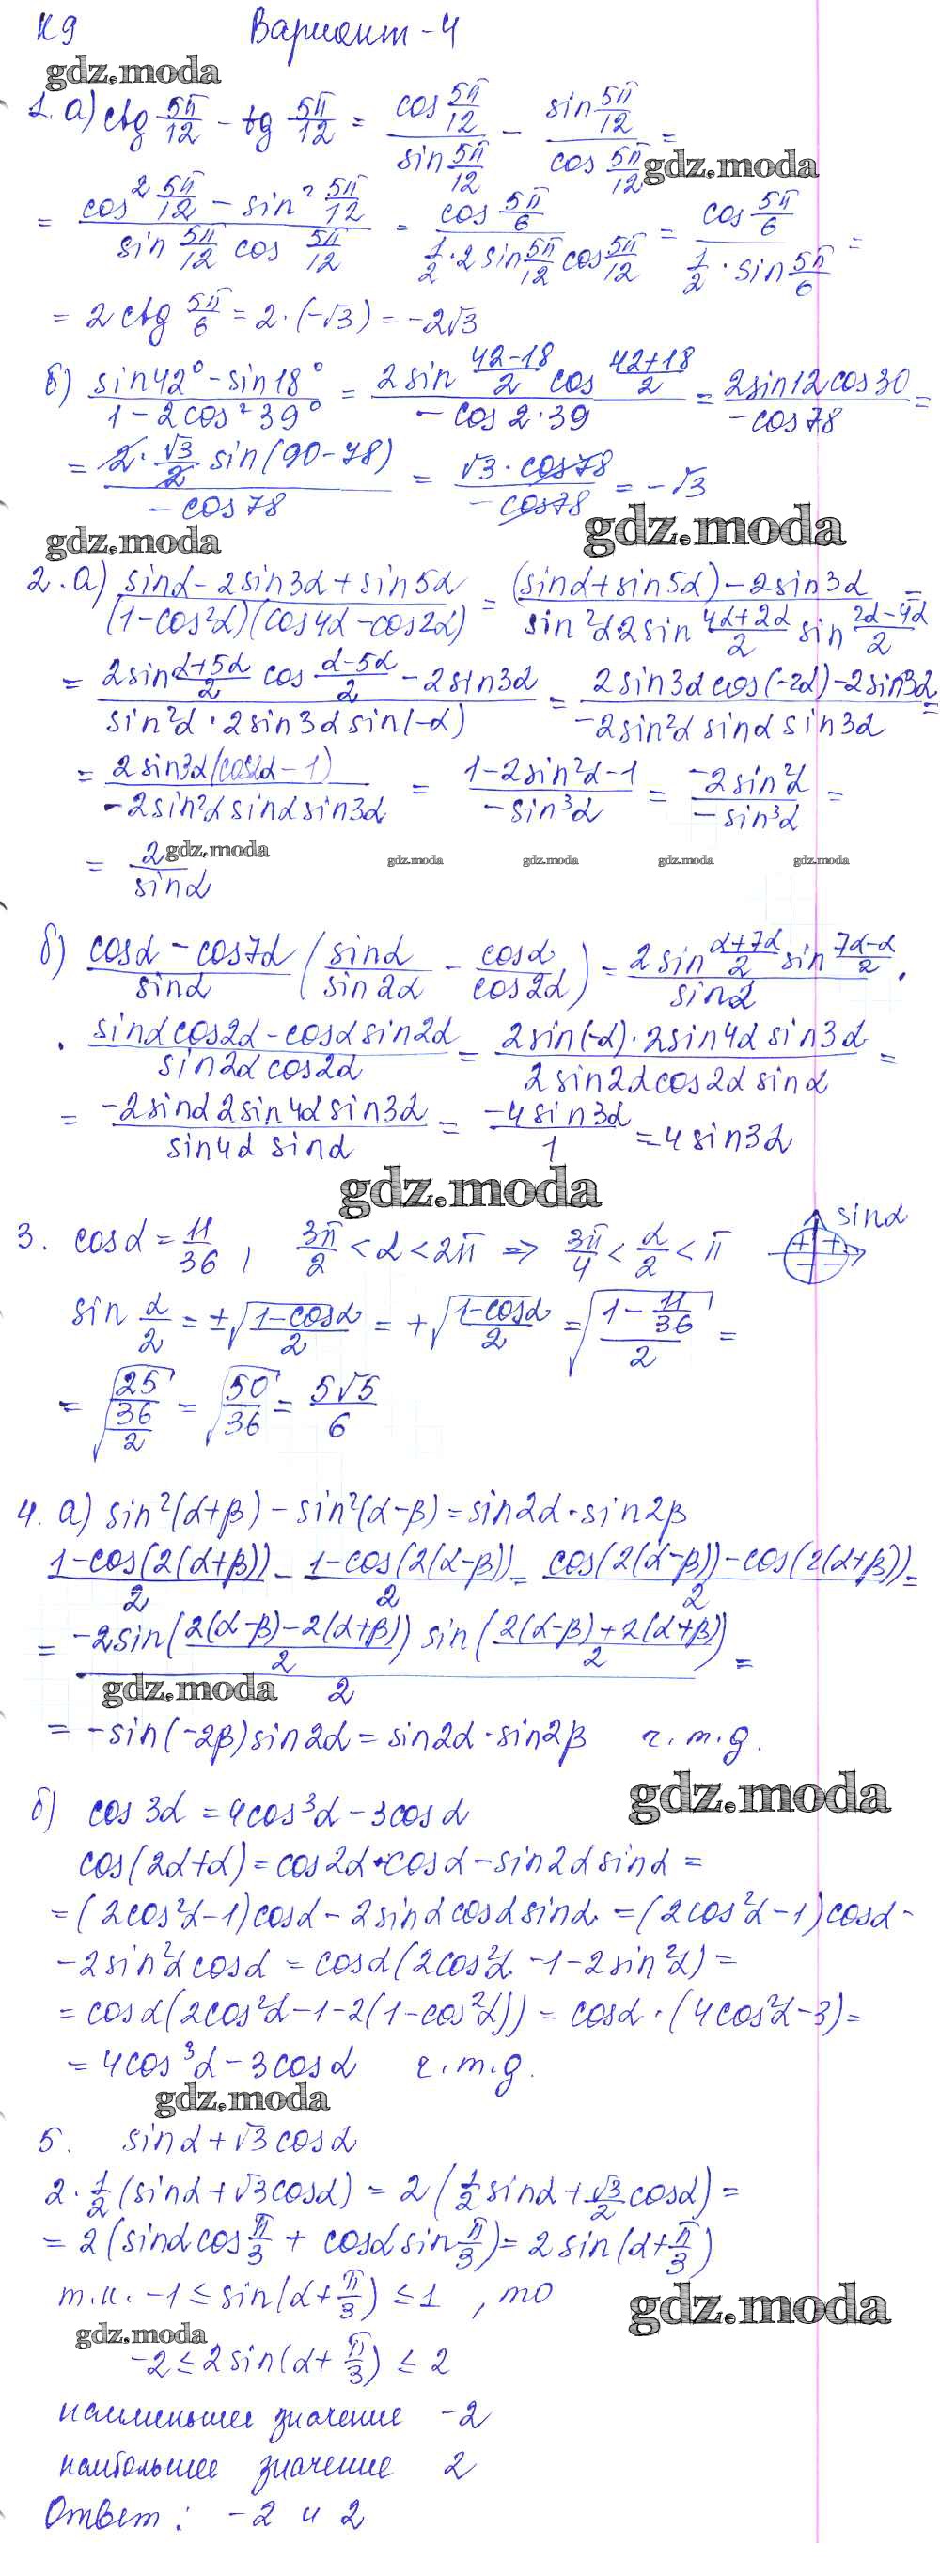 К9 Вариант-4
gdz.moda
1. а) ctg 5π/12 - tg 5π/12 = cos 5π/12 / sin 5π/12 - sin 5π/12 / cos 5π/12 =
gdz.moda
= (cos² 5π/12 - sin² 5π/12) / (sin 5π/12 cos 5π/12) = cos 5π/6 / (1/2 · 2 sin 5π/12 cos 5π/12) = cos 5π/6 / (1/2 · sin 5π/6) =
= 2 ctg 5π/6 = 2·(-√3) = -2√3
б) (sin42° - sin18°) / (1 - 2cos² 39°) = (2 sin (42-18)/2 cos (42+18)/2) / (-cos 2·39) = 2sin12cos30 / -cos78 =
= (2·√3/2 sin(90-78)) / -cos78 = √3·cos78 / -cos78 = -√3
gdz.moda
gdz.moda
2. а) (sinα - 2sin3α + sin5α) / ((1-cos²α)(cos4α - cos2α)) = ((sinα + sin5α) - 2sin3α) / (sin²α 2sin (4α+2α)/2 sin (2α-4α)/2) =
= (2sin (α+5α)/2 cos (α-5α)/2 - 2sin3α) / (sin²α · 2sin3α sin(-α)) = (2sin3α cos(-2α) - 2sin3α) / (-2sin²α sinα sin3α) =
= 2sin3α(cos2α - 1) / (-2sin²α sinα sin3α) = (1-2sin²α-1) / (-sin³α) = -2sin²α / -sin³α =
= 2 / sinα
gdz.moda gdz.moda gdz.moda gdz.moda gdz.moda
б) (cosα - cos7α) / sinα (sinα / sin2α - cosα / cos2α) = (2sin (α+7α)/2 sin (7α-α)/2) / sinα ·
· (sinαcos2α - cosαsin2α) / (sin2αcos2α) = (2sin(-α)·2sin4α sin3α) / (2sin2αcos2α sinα) =
= (-2sinα2sin4α sin3α) / (sin4α sinα) = -4sin3α / 1 = 4sin3α
gdz.moda
3. cosα = 11/36, 3π/2 < α < 2π => 3π/4 < α/2 < π
sinα
sin α/2 = ±√((1-cosα)/2) = +√((1-cosα)/2) = √((1 - 11/36)/2) =
= √((25/36)/2) = √(50/36) = 5√5/6
4. а) sin²(α+β) - sin²(α-β) = sin2α·sin2β
(1-cos(2(α+β)))/2 - (1-cos(2(α-β)))/2 = (cos(2(α-β)) - cos(2(α+β)))/2 =
= (-2sin((2(α-β)-2(α+β))/2) sin((2(α-β)+2(α+β))/2)) / 2 =
gdz.moda
= -sin(-2β)sin2α = sin2α·sin2β ч.т.д.
gdz.moda
б) cos3α = 4cos³α - 3cosα
cos(2α+α) = cos2α·cosα - sin2αsinα =
= (2cos²α-1)cosα - 2sinαcosαsinα = (2cos²α-1)cosα -
-2sin²αcosα = cosα(2cos²α - 1 - 2sin²α) =
= cosα(2cos²α-1-2(1-cos²α)) = cosα·(4cos²α-3) =
= 4cos³α - 3cosα ч.т.д.
gdz.moda
5. sinα + √3cosα
2·1/2(sinα + √3cosα) = 2(1/2 sinα + √3/2 cosα) =
= 2(sinαcos π/3 + cosαsin π/3) = 2sin(α + π/3)
т.к. -1 ≤ sin(α + π/3) ≤ 1, то
gdz.moda
gdz.moda
-2 ≤ 2sin(α + π/3) ≤ 2
наименьшее значение -2
наибольшее значение 2
Ответ: -2 и 2